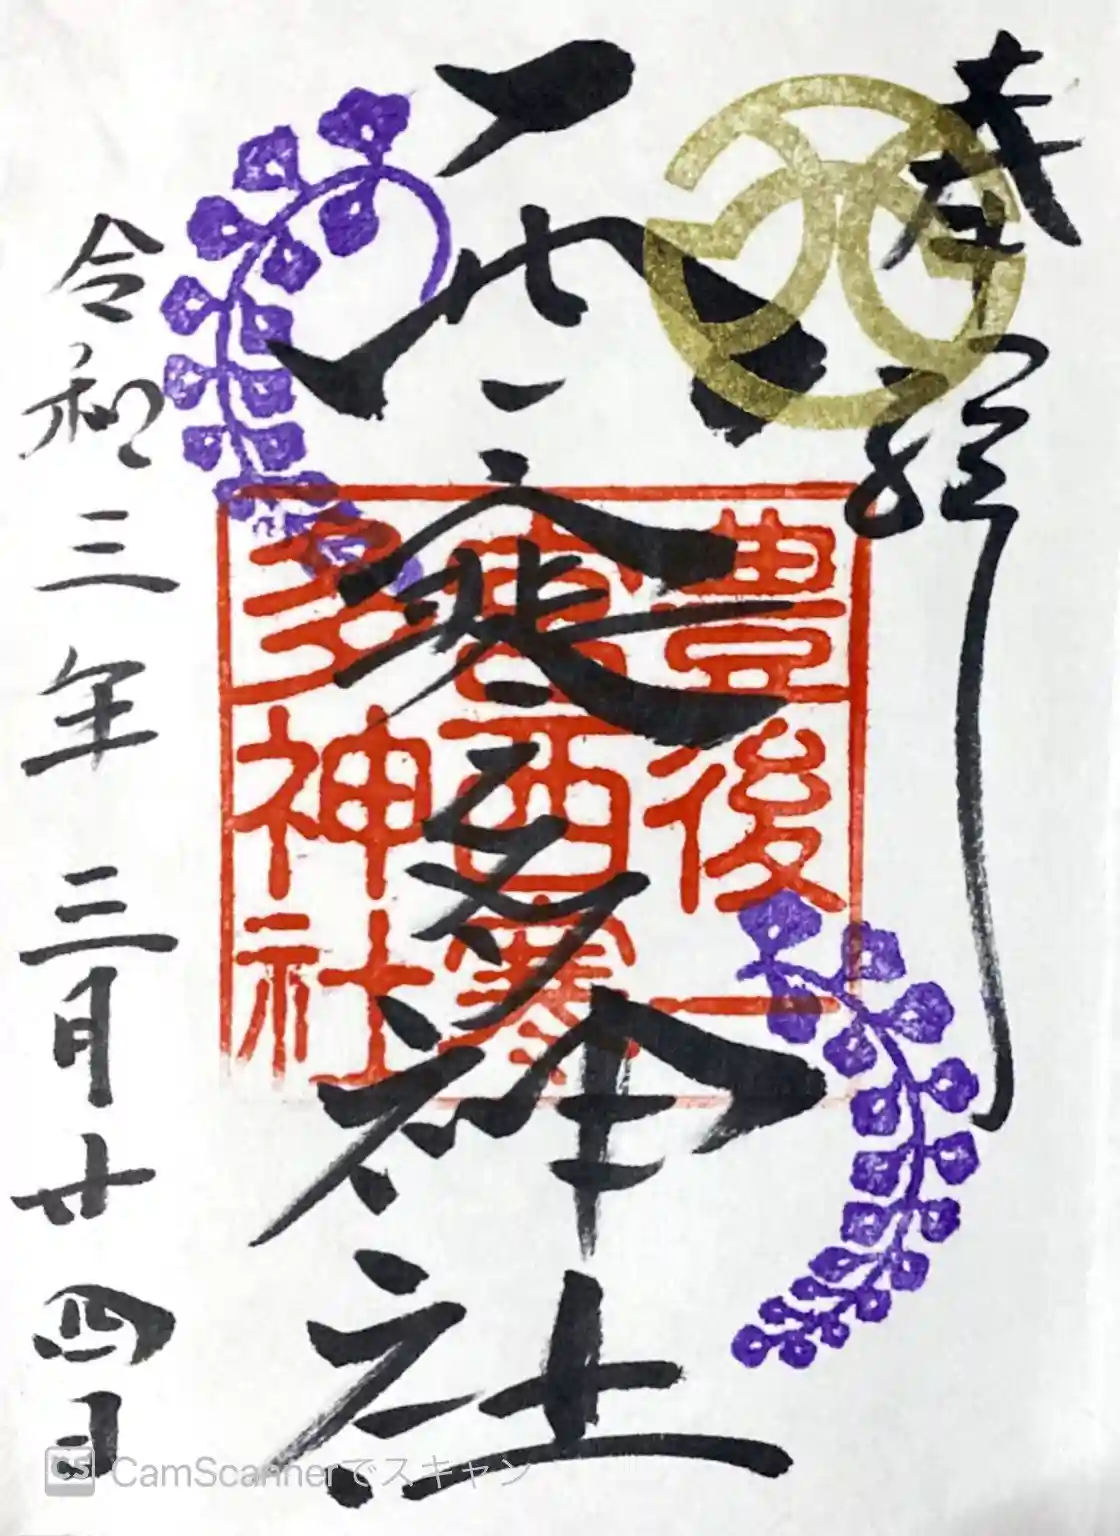 奉拝
西寒多神社
豊後一
宮西寒
多神社
令和三年三月廿四日
CS CamScannerでスキャン